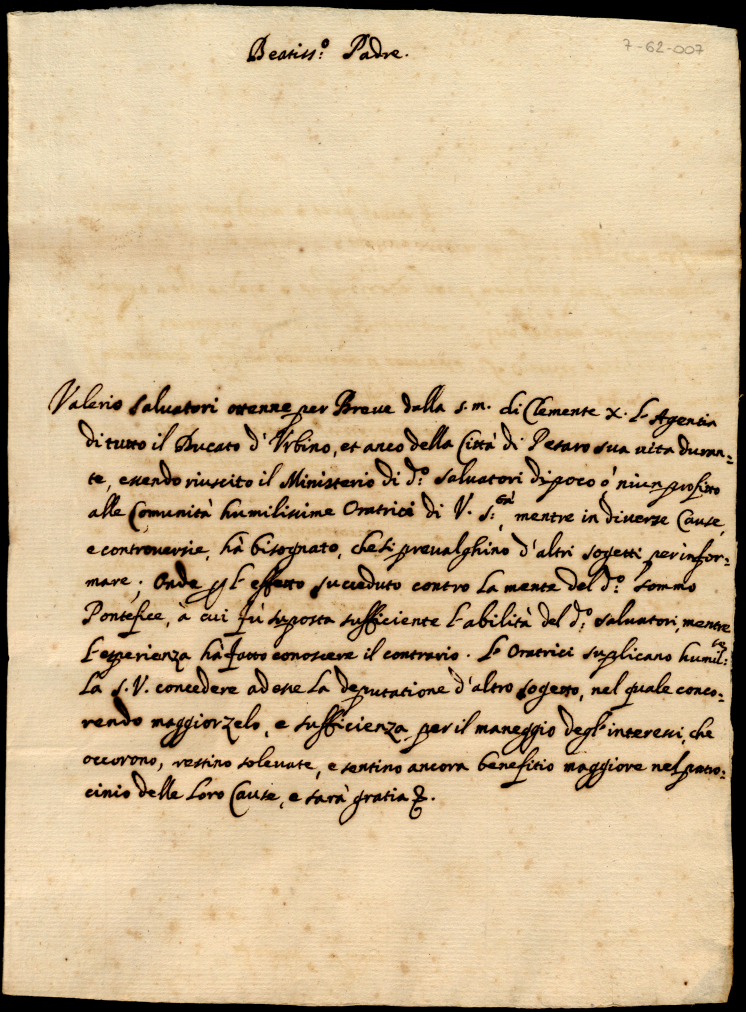 7-62-007
Beatiss:o Padre.
Valerio Salvatori ottenne per Breve dalla s.m. di Clemente X. l'Agentia
di tutto il Ducato d'Urbino, et anco della Città di Pesaro sua vita duran=
te, essendo riuscito il Ministerio di d:o Salvatori di poco ò niun profitto
alle Comunità humilissime Oratrici di V. S:tà, mentre in diverse Cause,
e controversie, hà bisognato, che si prevalghino d'altri sogetti per infor=
mare; Onde l'effetto succeduto contro la mente del d:o sommo
Pontefice, à cui fù suposta sufficiente l'abilità del d:o Salvatori, mentre
l'esperienza hà fatto conoscere il contrario. Le Oratrici suplicano humil:te
la S.V. concedere ad esse la deputatione d'altro sogetto, nel quale conco=
rendo maggior zelo, e sufficienza per il maneggio degl'interessi, che
occorono, restino solevate, e sentino ancora benefitio maggiore nel patro=
cinio delle loro Cause, e sarà gratia &.